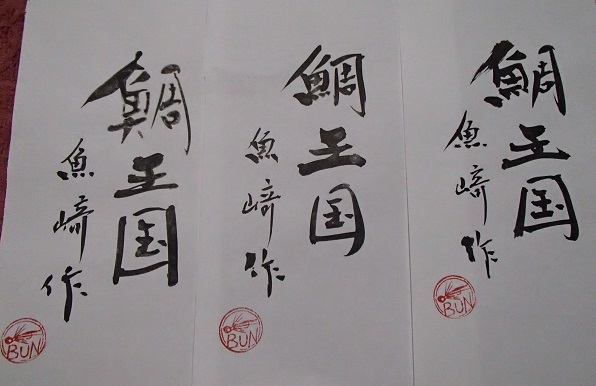 鯛王国
魚﨑作
BUN
鯛王国
魚﨑作
BUN
鯛王国
魚﨑作
BUN